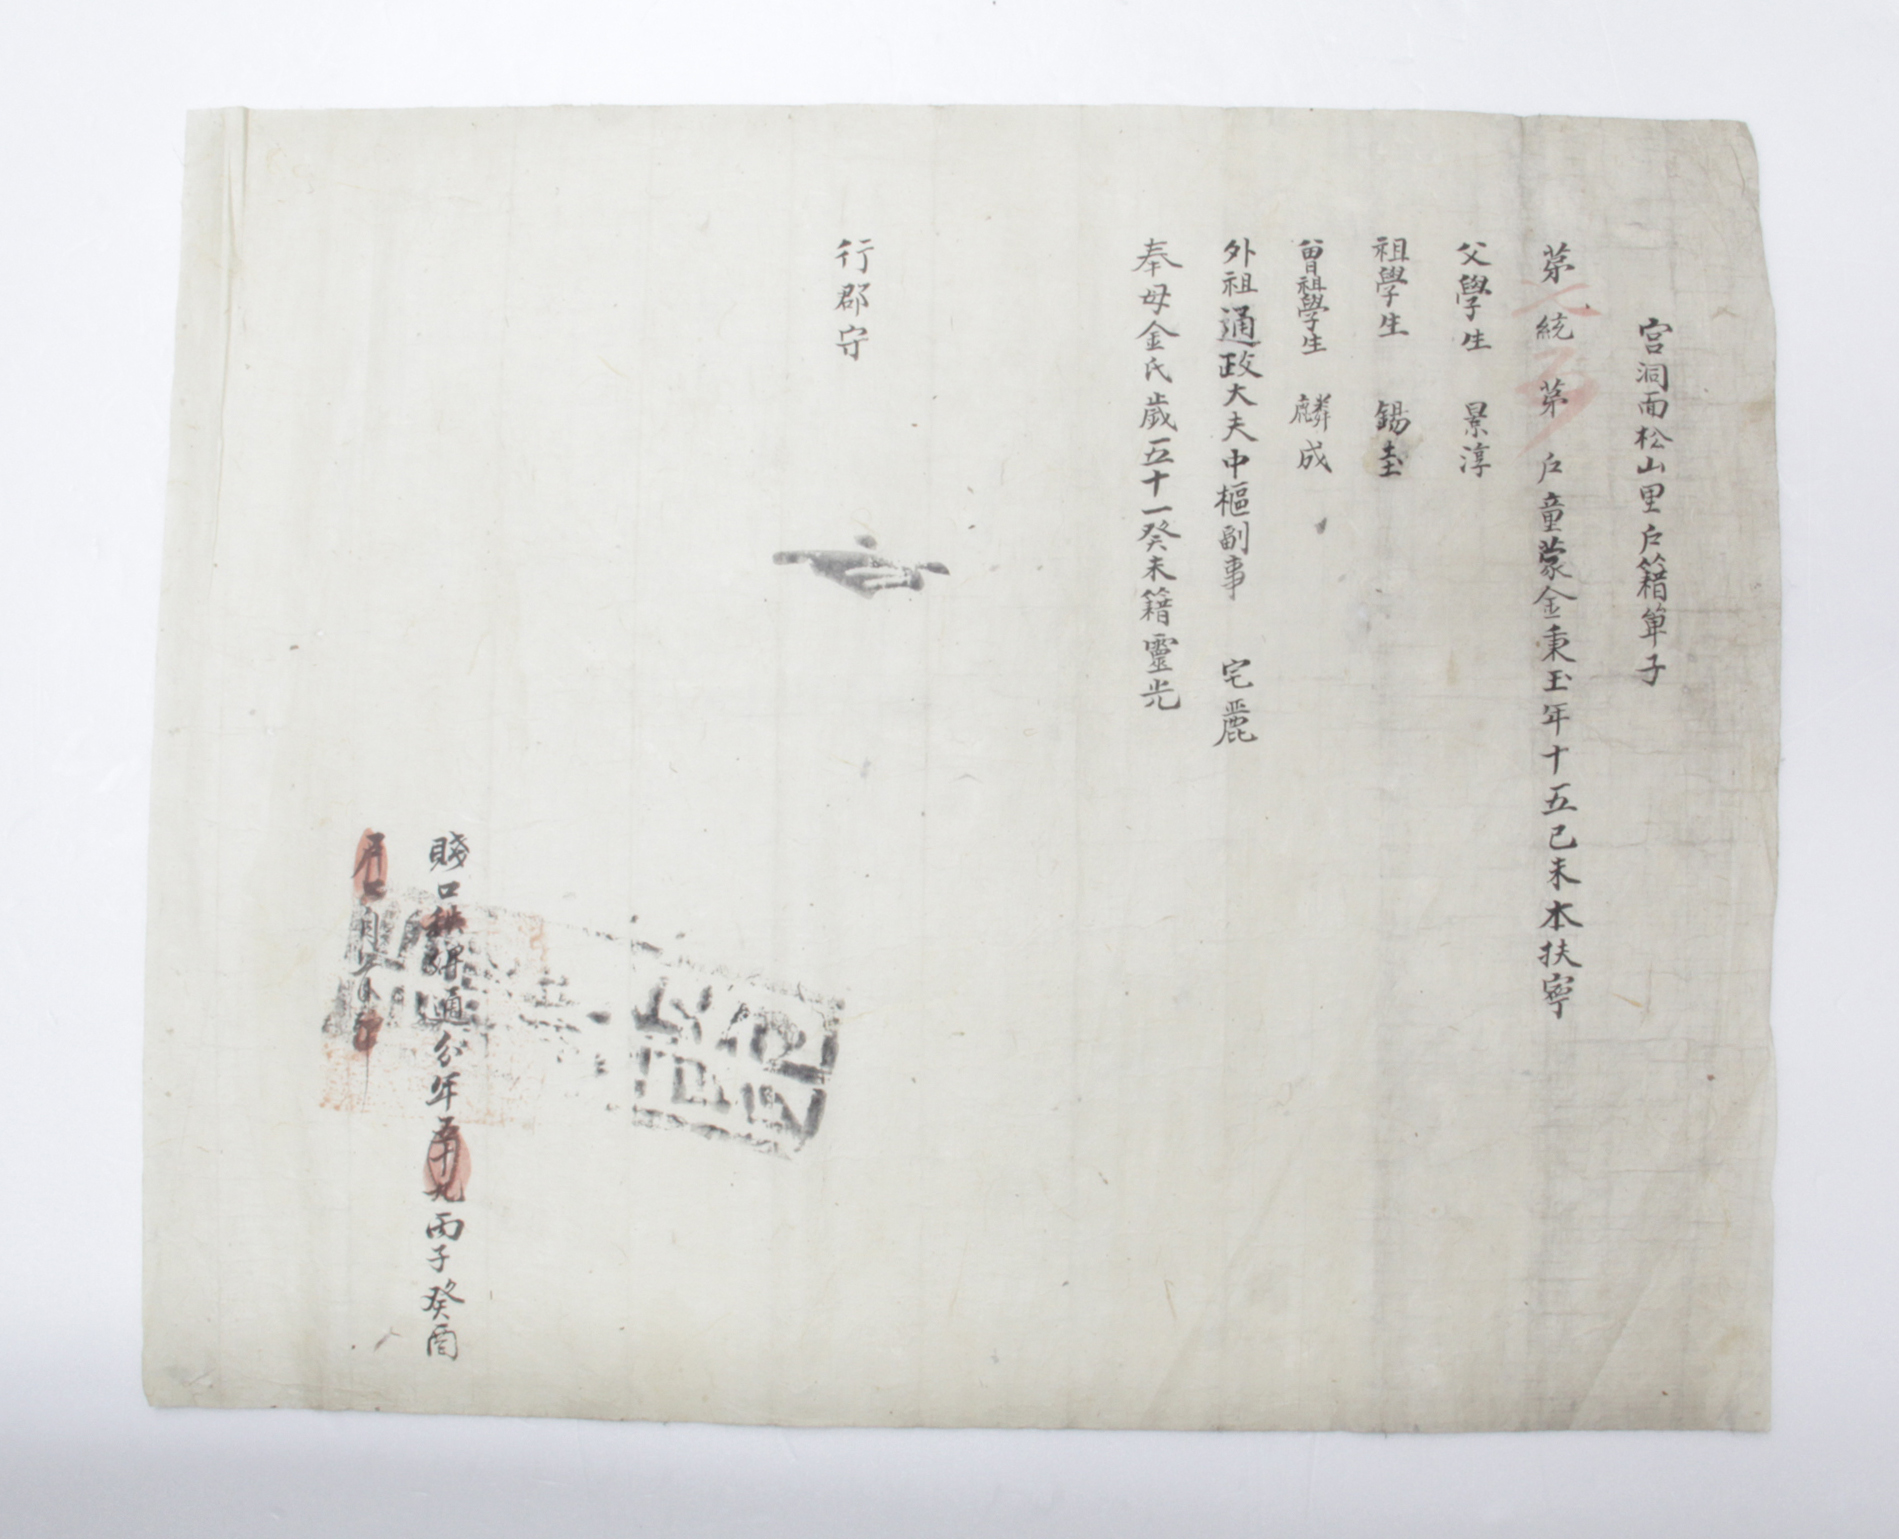 宮洞面松山里戶籍單子
苐 統 苐 戶童蒙金秉玉年十五己未本扶寧
父學生 景淳
祖學生 錫圭
曾祖學生 麟成
外祖通政大夫中樞副事 宅麗
奉母金氏歲五十一癸未籍靈光
行郡守
賤口秩婢通分年五十九丙子癸酉